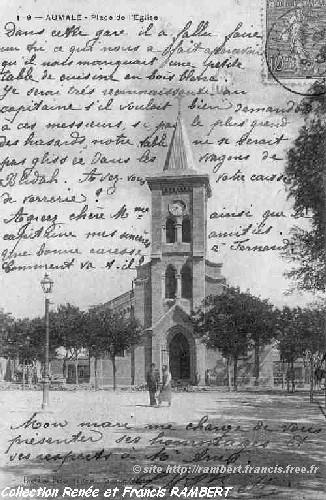 AUMALE - Place de l'Église
Dans cette gare il a fallu faire
ce que nous a fait apercevoir
qu'il nous manquait une petite
table de cuisine en bois blanc.
Je serai très reconnaissante au
capitaine s'il voulait bien demander
à ces messieurs, si par le plus grand
des hasards, notre table ne serait
pas glissée dans les wagons de
Blidah. Avez vous votre caisse
de verrerie ?
Agréez chère Mme ainsi que le
capitaine mes sincères amitiés
que bonne caresse à Fernand
Comment va-t-il ?
Mon mari me charge de vous
présenter ses hommages et
ses respects à Mr
© site http://rambert.francis.free.fr
Collection Renée et Francis RAMBERT